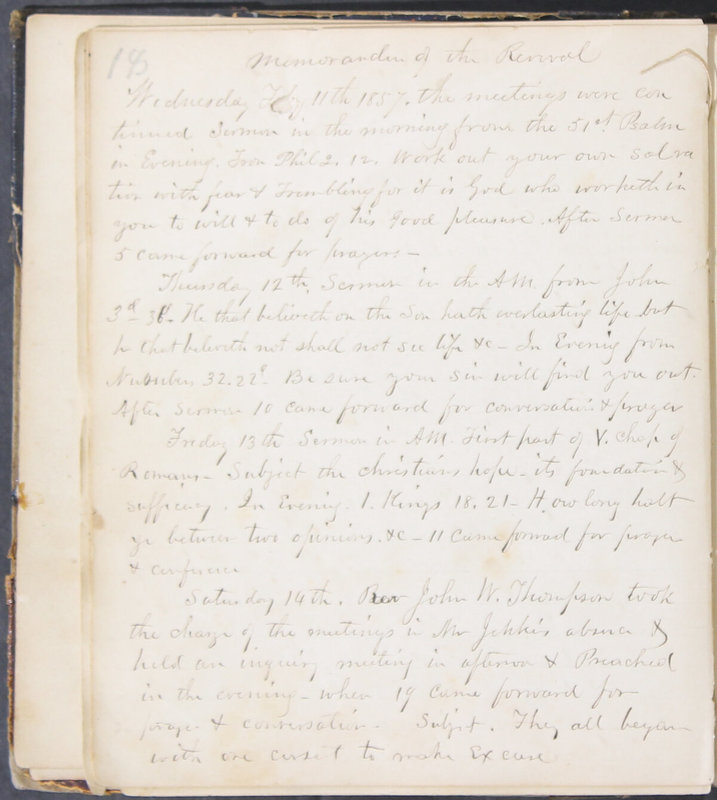 18
Memoranden of the Revival
Wednesday Feby 11th 1857. the meetings were con
tinued Sermon in the morning from the 51st Psalm
in Evening. from Phil 2. 12. Work out your own salva
tion with fear & Trembling for it is God who worketh in
you to will & to do of his good pleasure. After Sermon
5 came forward for prayers. -
Thursday 12th. Sermon in the A.M. from John
3d 36. He that believeth on the Son hath everlasting life but
he that believeth not shall not see life &c - In Evenig from
Numbers 32. 22d. Be sure your sin will find you out.
After Sermon 10 came forward for conversation & prayer
Friday 13th Sermon in A.M. First part of V. Chap of
Romans - Subject the christians hope - its foundation &
sufficiency. In Evening. 1. Kings 18. 21 - How long halt
ye between two opinions. &c - 11 came forward for prayer
& conference
Saturday 14th. Rev John W. Thompson took
the charge of the meetings in Mr absence &
held an inquiry meeting in afternoon & Preached
in the evening - when 19 came forward for
prayer & conversation - Subject. They all began
with one consent to make Excuse